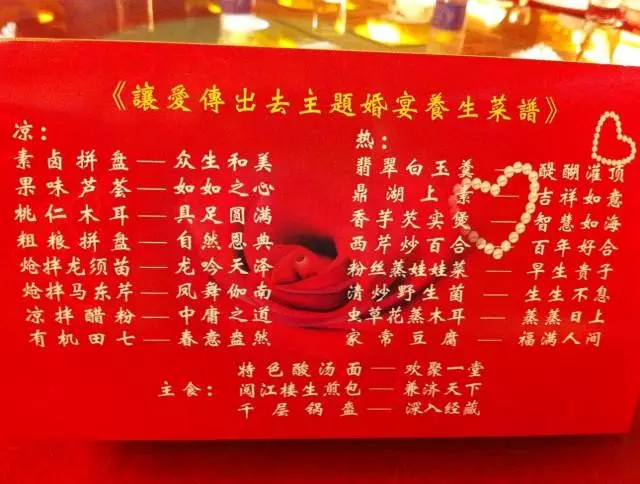 《讓愛傳出去主題婚宴養生菜譜》
凉：
素卤拼盘—众生和美
果味芦荟—如如之心
桃仁木耳—具足圆满
粗粮拼盘—自然恩典
炝拌龙须苗—龙吟天泽
炝拌马东芹—凤舞伽南
凉拌醋粉—中庸之道
有机田七—春意盎然
热：
翡翠白玉羹—醍醐灌顶
鼎湖上素—吉祥如意
香芋芡实煲—智慧如海
西芹炒百合—百年好合
粉丝蒸娃娃菜—早生贵子
清炒野生菌—生生不息
虫草花蒸木耳—蒸蒸日上
家常豆腐—福满人间
主食：
特色酸汤面—欢聚一堂
阅江楼生煎包—兼济天下
千层锅盔—深入经藏